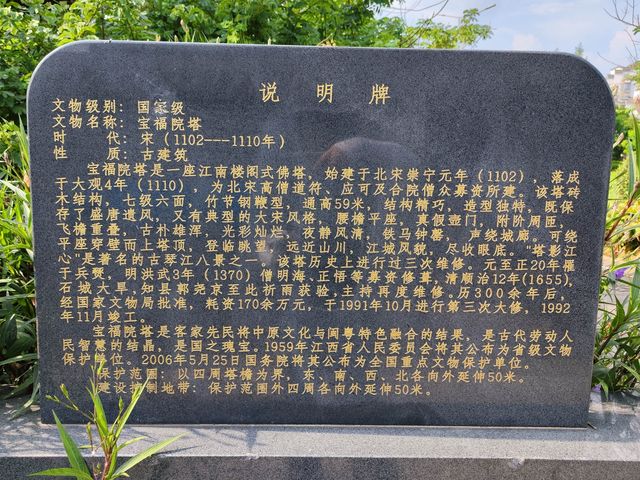 说明牌
文物级别：国家级
文物名称：宝福院塔
时　　代：宋（1102---1110年）
性　　质：古建筑
宝福院塔是一座江南楼阁式佛塔，始建于北宋崇宁元年（1102），落成
于大观4年（1110），为北宋高僧道符、应可及合院僧众募资所建。该塔砖
木结构，七级六面，竹节钢鞭型，通高59米，结构精巧，造型独特，既保
存了盛唐遗风，又有典型的大宋风格，腰檐平座，真假壸门，附阶周匝，
飞檐重叠，古朴雄浑，光彩灿烂，夜静风清，铁马钟馨，声绕城廊。可绕
平座穿壁而上塔顶，登临眺望，远近山川，江城风貌，尽收眼底。“塔影江
心”是著名的古琴江八景之一。该塔历史上进行过三次维修。元至正20年罹
于兵燹，明洪武3年（1370）僧明海、正悟等募资修葺，清顺治12年(1655)，
石城大旱，知县郭尧京至此祈雨获验，主持再度维修。历300余年后，
经国家文物局批准，耗资170余万元，于1991年10月进行第三次大修，1992
年11月竣工。
宝福院塔是客家先民将中原文化与闽粤特色融合的结果，是古代劳动人
民智慧的结晶，是国之瑰宝。1959年江西省人民委员会将其公布为省级文物
保护单位。2006年5月25日国务院将其公布为全国重点文物保护单位。
保护范围：以四周塔檐为界，东、南、西、北各向外延伸50米。
建设控制地带：保护范围外四周各向外延伸50米。